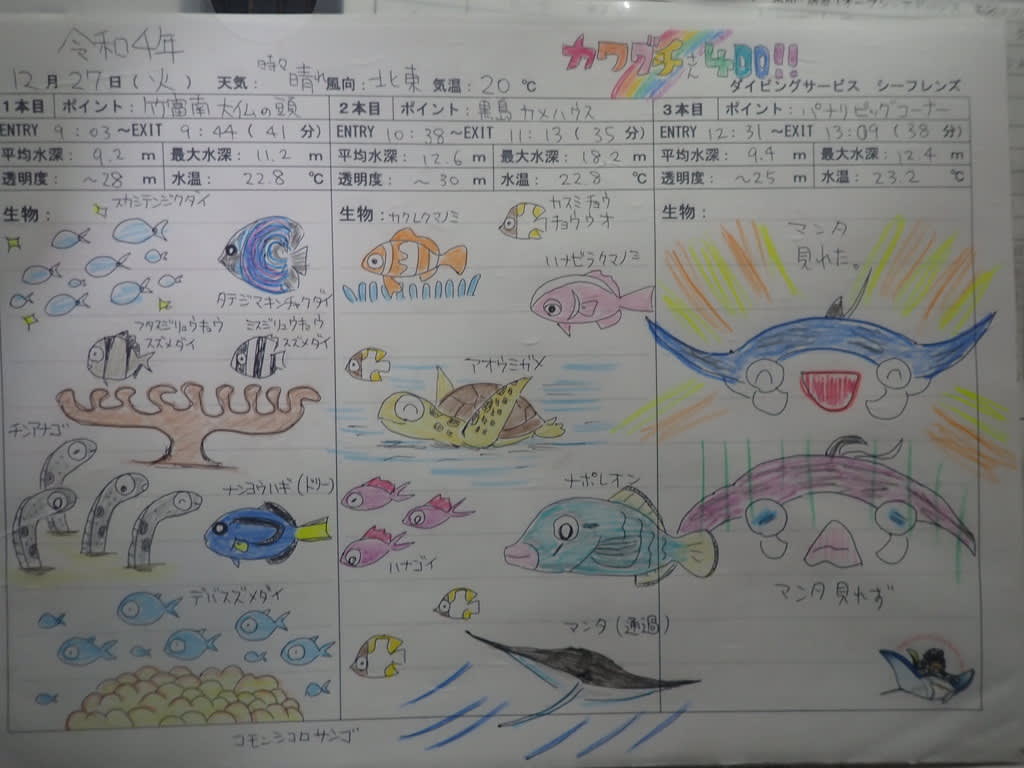 令和4年
カワグチさん400!!
12月27日(火) 天気: 時々晴れ 風向: 北東 気温: 20℃ ダイビングサービス シーフレンズ
1本目 ポイント: 竹富南 大仏の頭
ENTRY 9:03～EXIT 9:44(41分)
平均水深: 9.2 m 最大水深: 11.2 m
透明度: ～28 m 水温: 22.8 ℃
生物:
スカシテンジクダイ
タテジマキンチャクダイ
フタスジリュウキュウスズメダイ
ミスジリュウキュウスズメダイ
チンアナゴ
ナンヨウハギ(ドリー)
デバスズメダイ
コモンシコロサンゴ
2本目 ポイント: 黒島 カメハウス
ENTRY 10:38～EXIT 11:13(35分)
平均水深: 12.6 m 最大水深: 18.2 m
透明度: ～30 m 水温: 22.8 ℃
生物: カクレクマノミ
カスミチョウチョウウオ
ハナビラクマノミ
アオウミガメ
ナポレオン
ハナゴイ
マンタ(通過)
3本目 ポイント: パナリビッグコーナー
ENTRY 12:31～EXIT 13:09(38分)
平均水深: 9.4 m 最大水深: 12.4 m
透明度: ～25 m 水温: 23.2 ℃
生物:
マンタ
見れた。
マンタ見れず